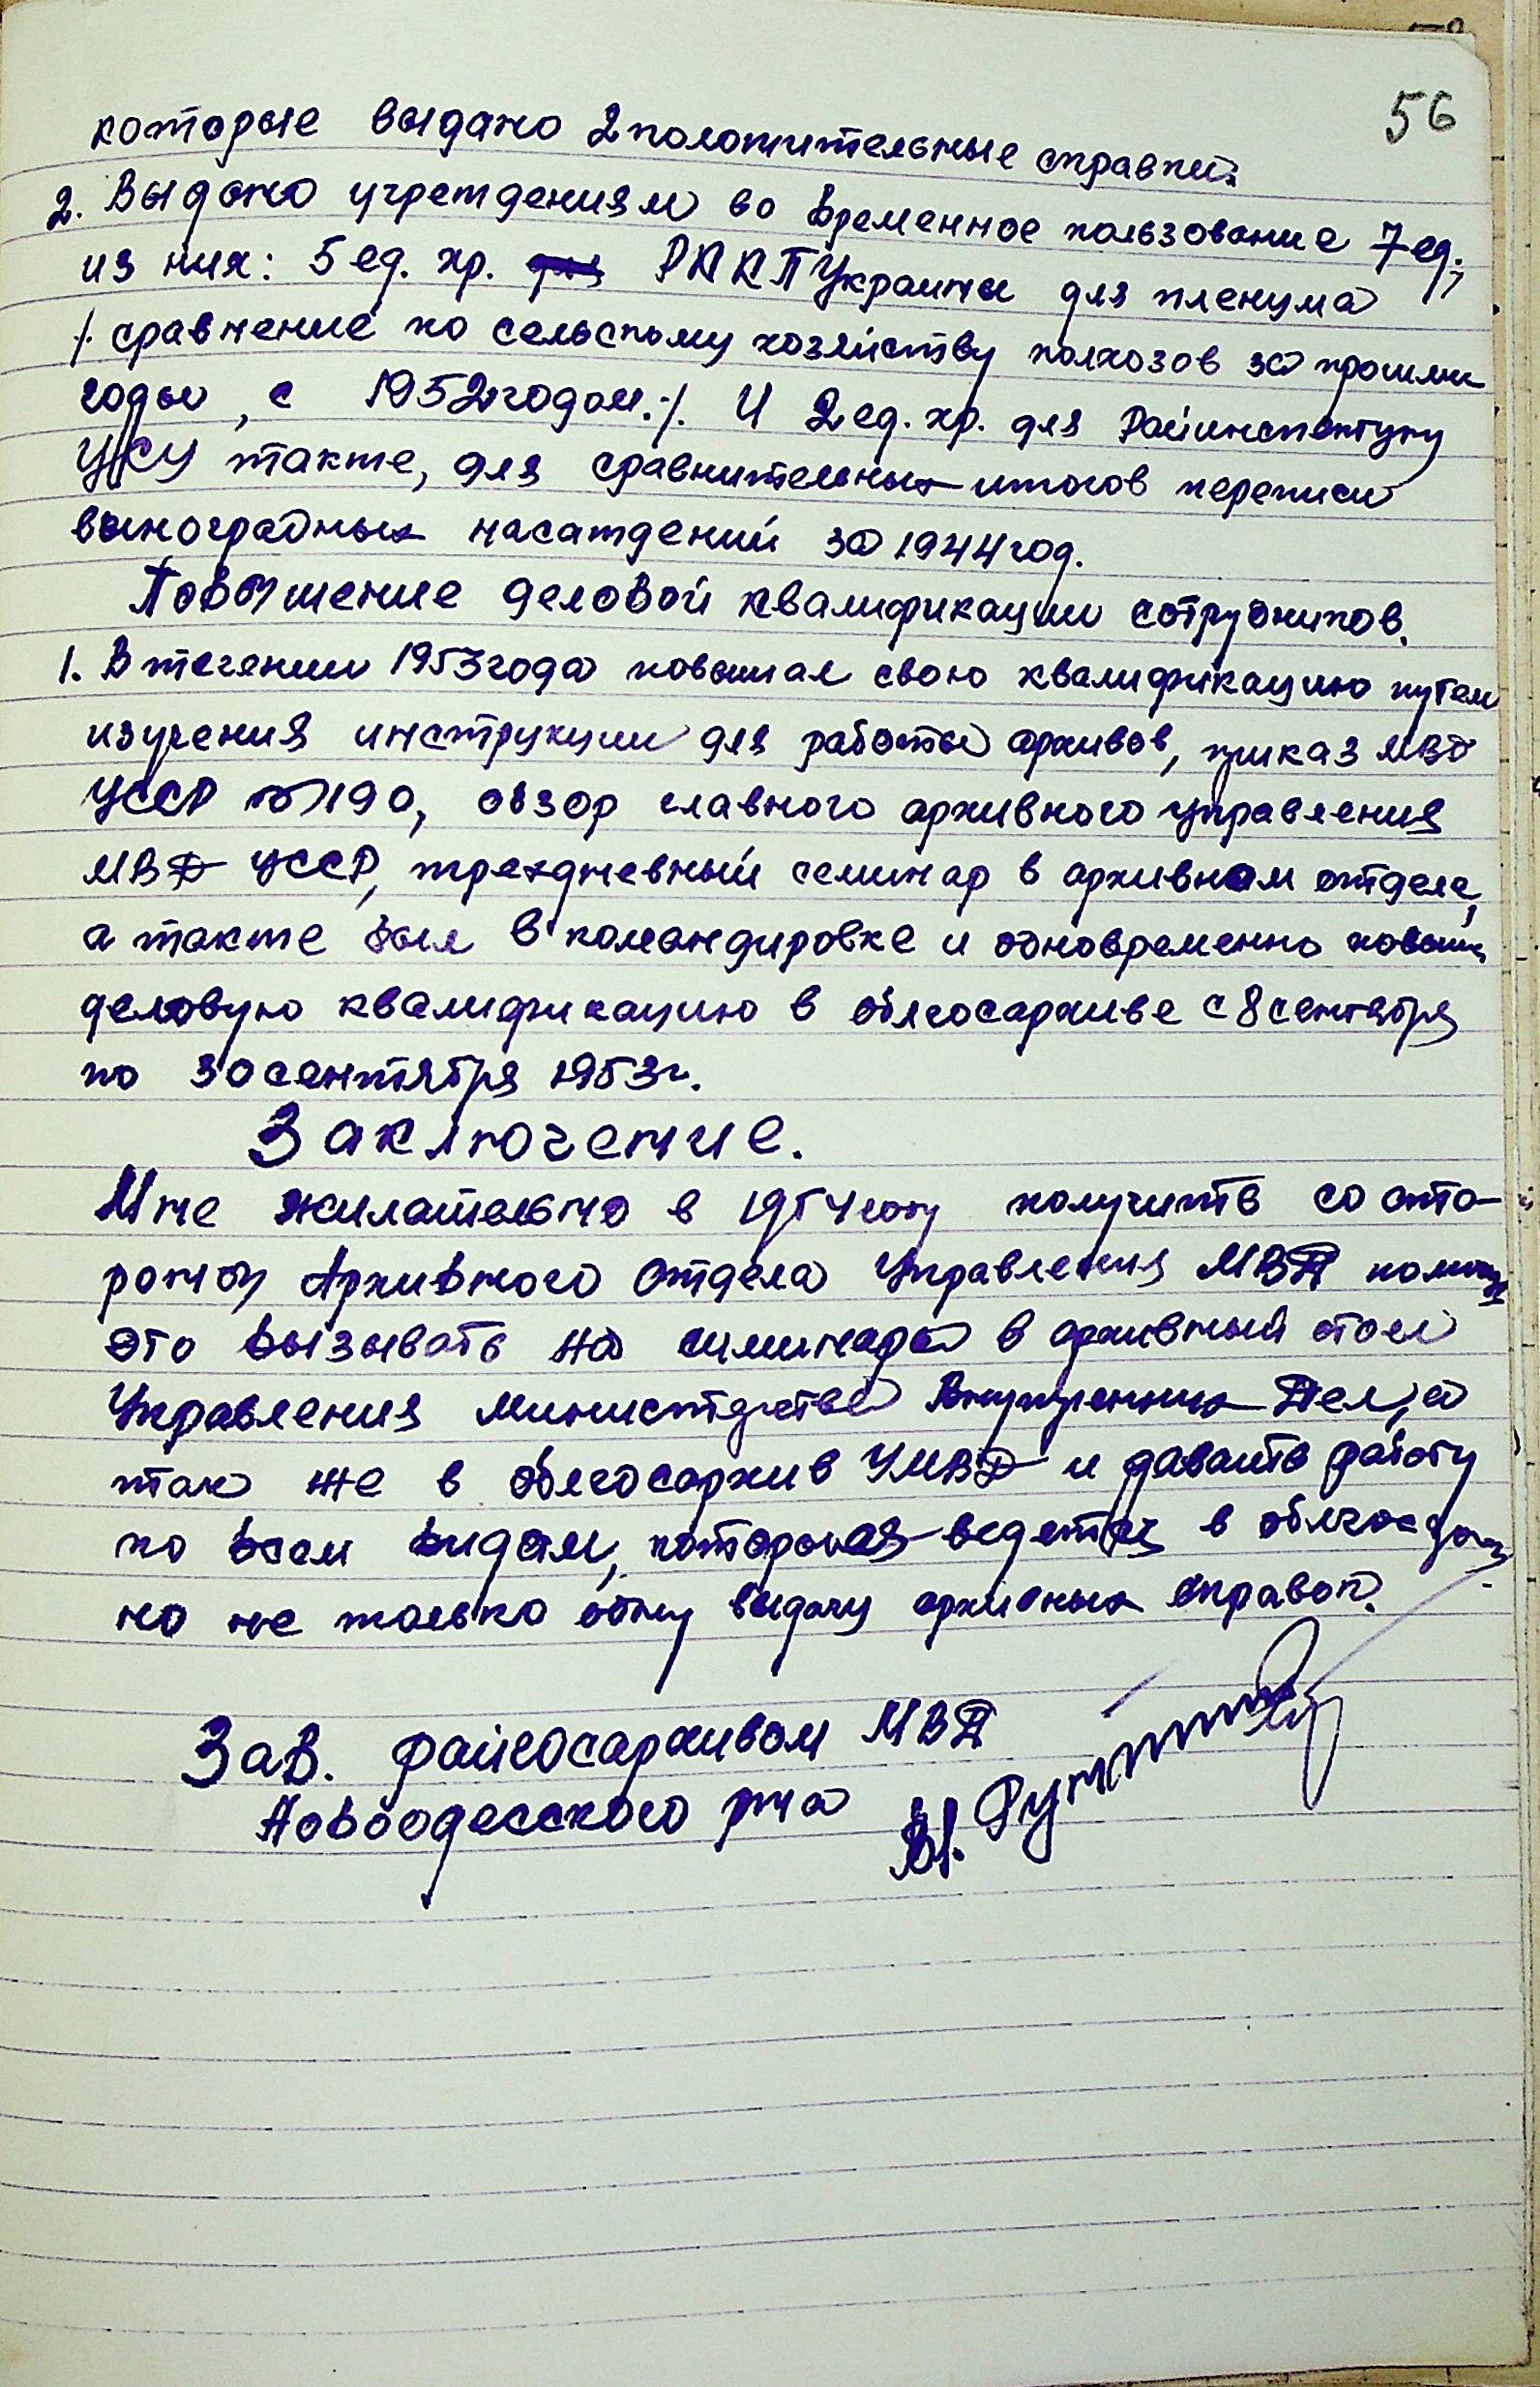 56
которые выдано 2 положительные справки.
2. Выдано учреждениям во временное пользование 7 ед.,
из них: 5 ед. хр. РК КП Украины для пленума
/. сравнение по сельскому хозяйству колхозов за прошлые
годы, с 1952 годом./. И 2 ед. хр. для Райинспектуру
ЦСУ также, для сравнительных итогов переписи
виноградных насаждений за 1944 год.
Повышение деловой квалификации сотрудников.
1. В течении 1953 года повышал свою квалификацию путем
изучения инструкции для работы архивов, приказ МВД
УССР №190, обзор главного архивного управления
МВД УССР, трехдневный семинар в архивном отделе,
а также был в командировке и одновременно повыш.
деловую квалификацию в облгосархиве с 8 сентября
по 30 сентября 1953 г.
Заключение.
Мне жилательно в 1954 году получить со сто-
роны Архивного отдела Управления МВД помощь
это вызывать на симинара в архивный отдел
Управления министерства Внутренних Дел, а
так же в облгосархив УМВД и давать работу
по всем видам, которая ведется в облгосархи
но не только одну выдачу архивных справок.
Зав. райгосархивом МВД
Новоодесского р-на Вл.